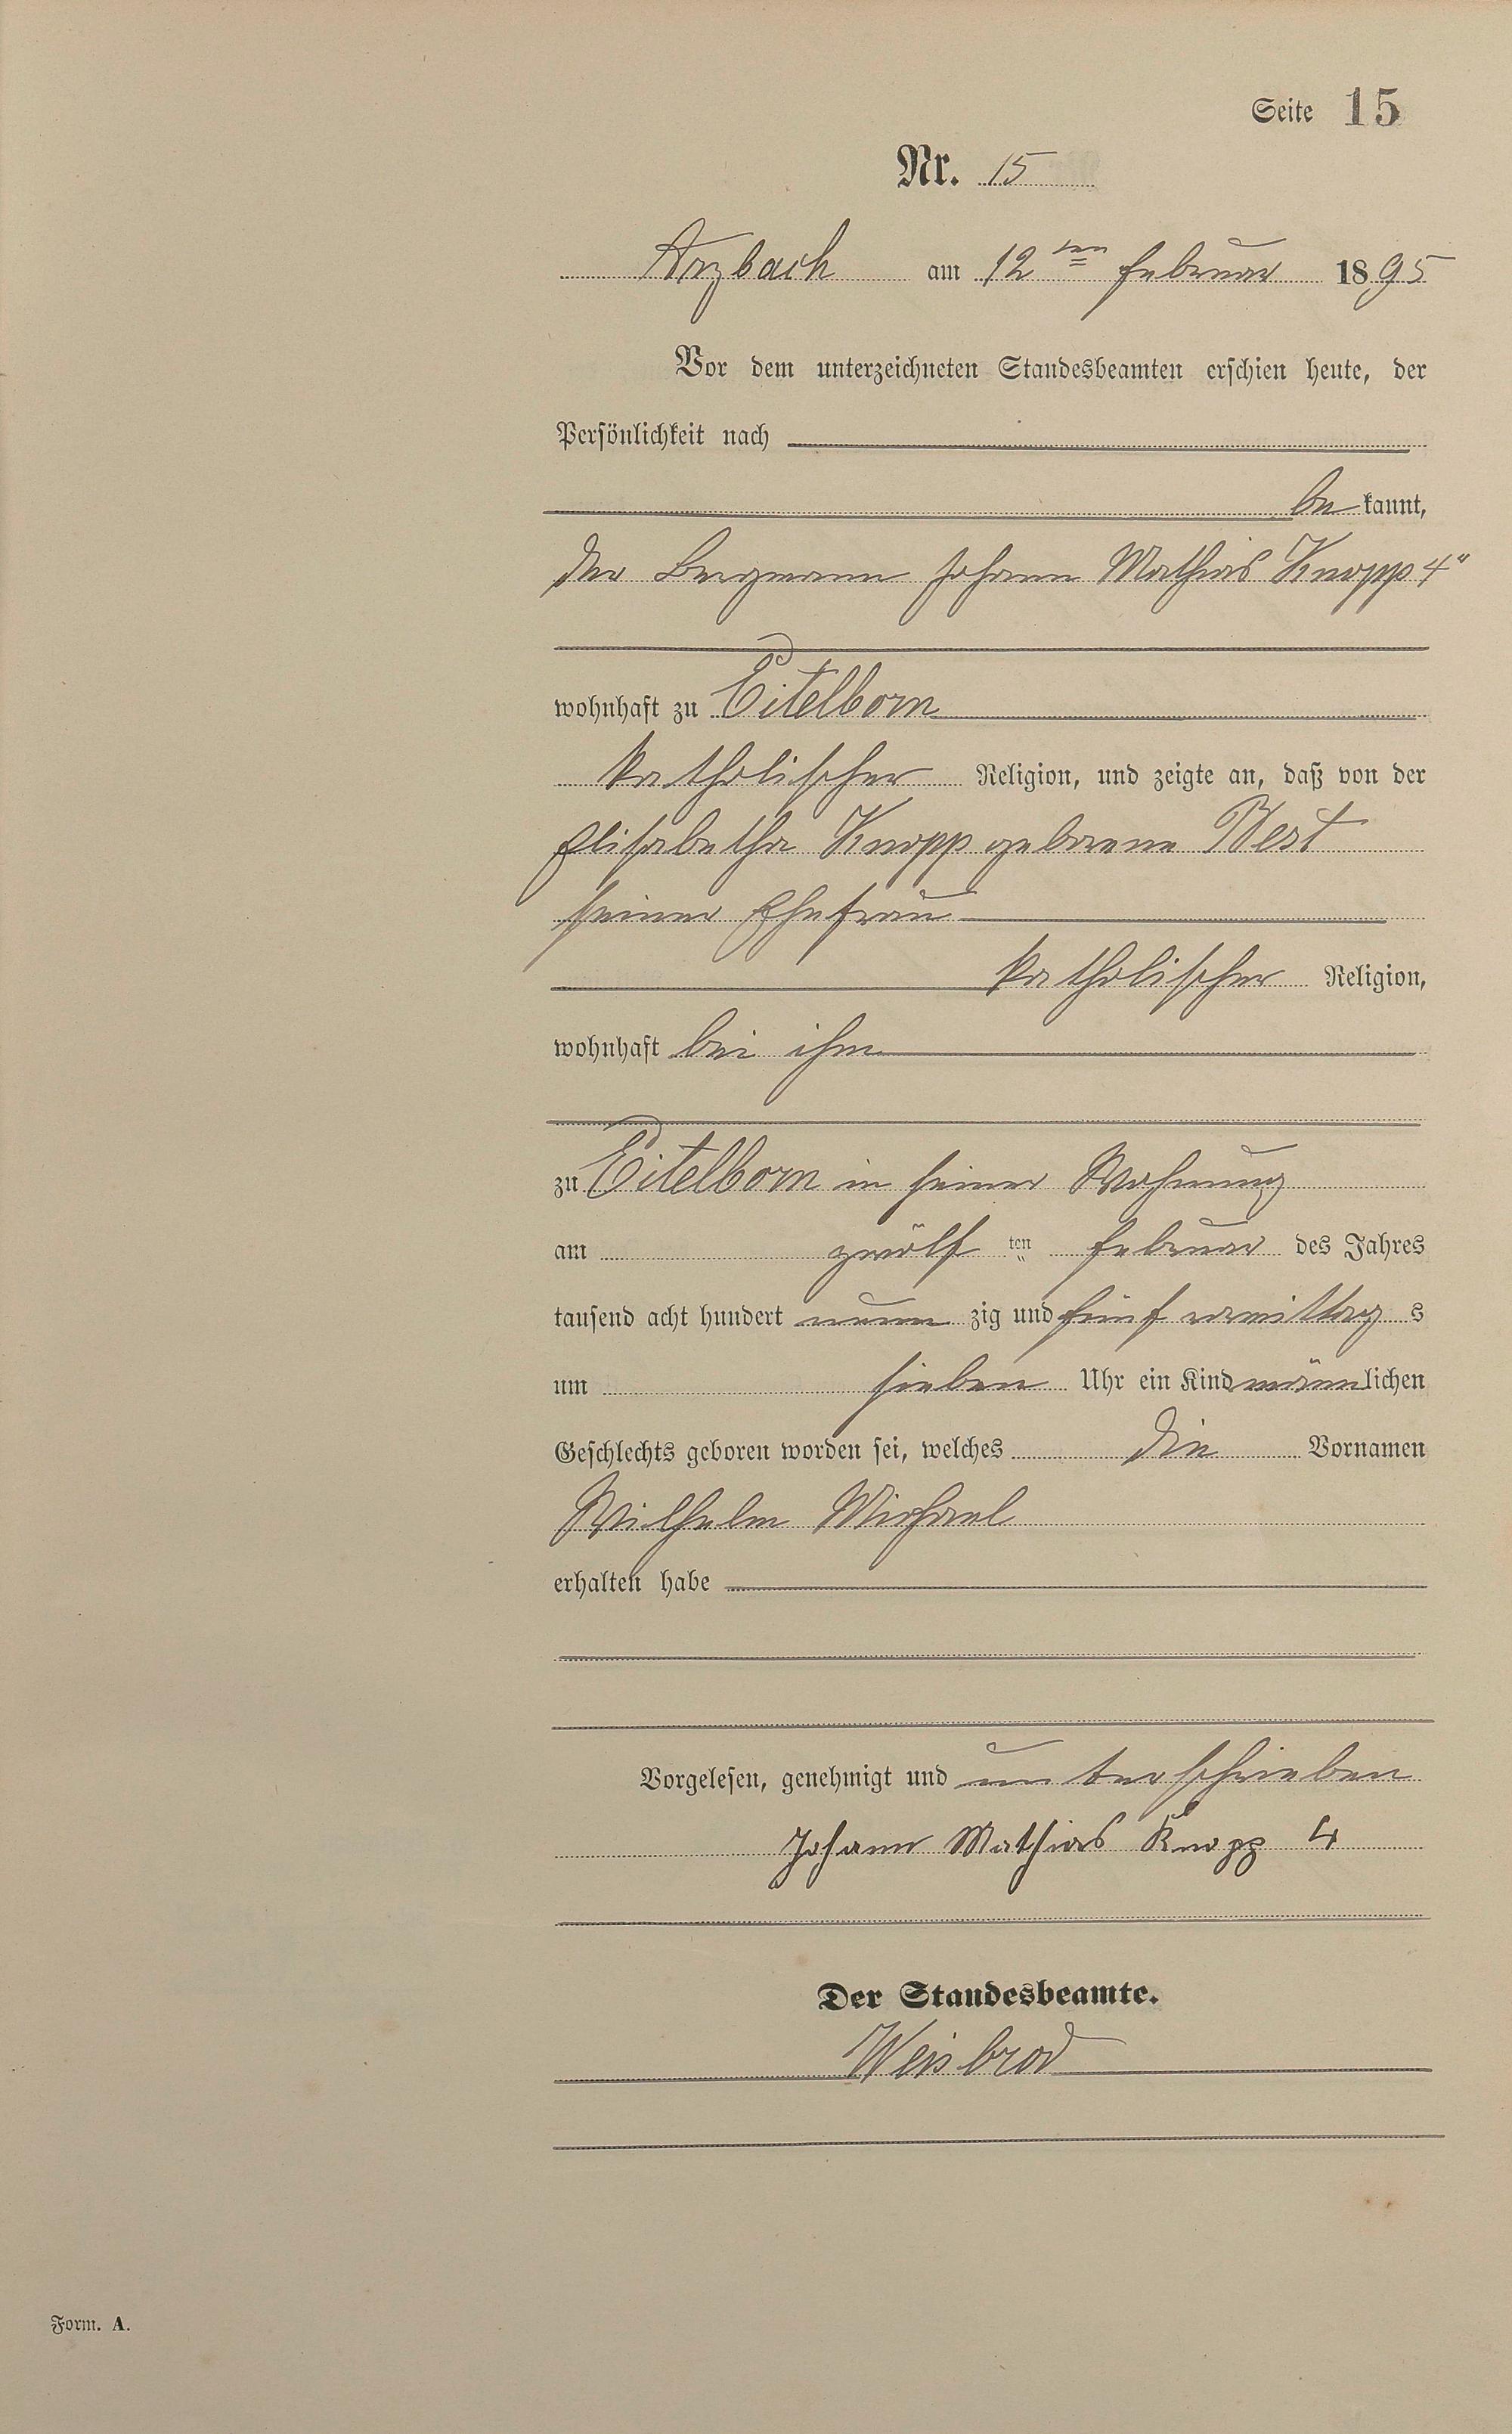 Seite 15
Nr. 15
Arzbach am 12ten Februar 1895
Vor dem unterzeichneten Standesbeamten erschien heute, der
Persönlichkeit nach
bekannt,
der Bergmann Johann Mathias Knopp 4"
wohnhaft zu Eitelborn
katholischer Religion, und zeigte an, daß von der
Elisabetha Knopp geborene Best
seiner Ehefrau
katholischer Religion,
wohnhaft bei ihm
zu Eitelborn in seiner Wohnung
am zwölf ten Februar des Jahres
tausend acht hundert neun zig und fünf vormittags
um sieben Uhr ein Kind männlichen
Geschlechts geboren worden sei, welches die Vornamen
Wilhelm Michael
erhalten habe
Vorgelesen, genehmigt und unterschrieben
Johann Mathias Knopp 4
Der Standesbeamte.
Weisbrod
Form. A.